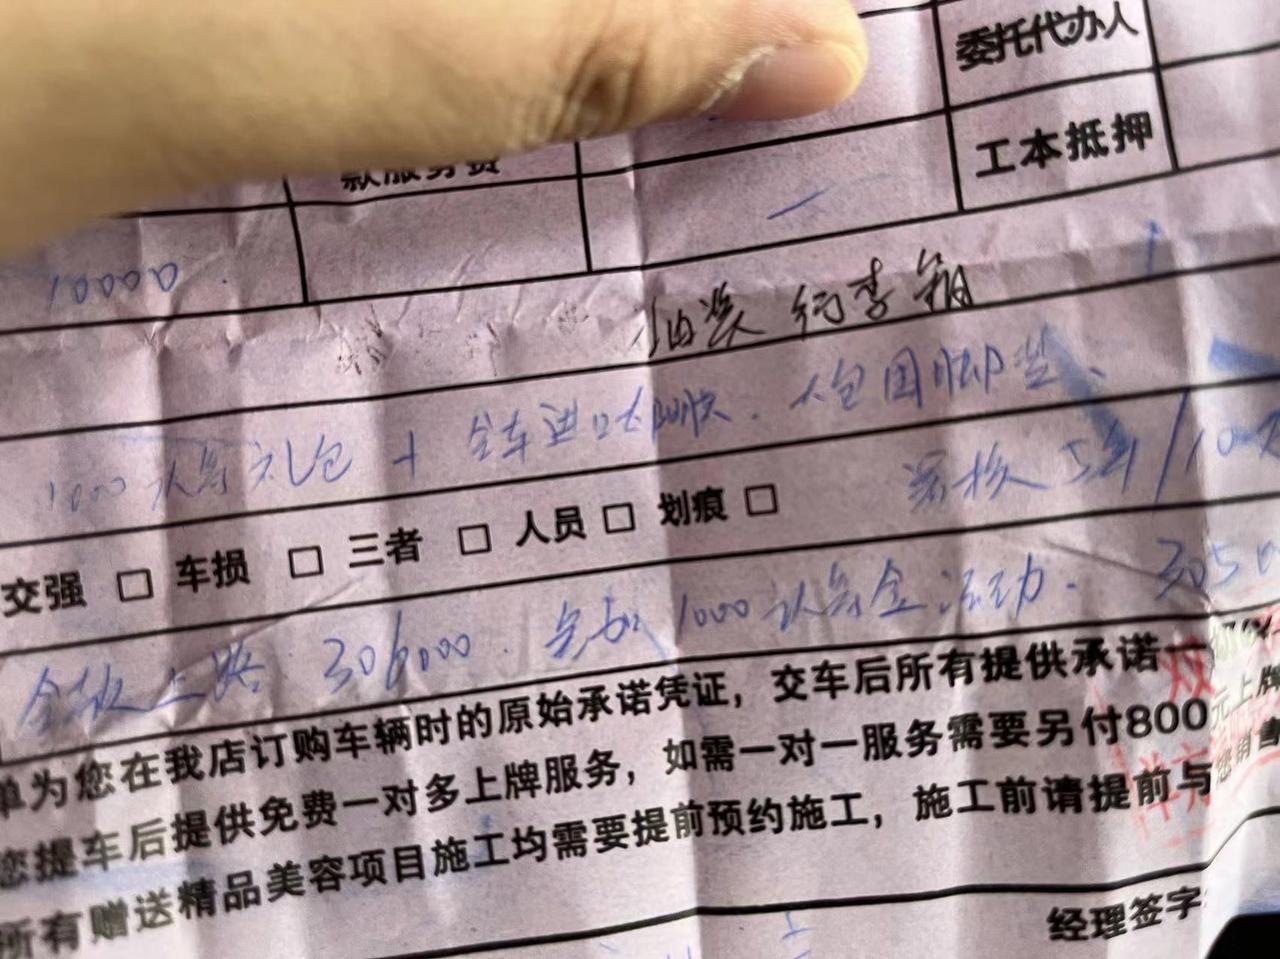 委托代办人
款服务费
工本抵押
10000
加装 行李箱
1000 礼包 + 全车进口太阳膜. 大包围脚垫、
交强 □ 车损 □ 三者 □ 人员 □ 划痕 □
全款上路 306000. 参加 1000 活动. 3050
单为您在我店订购车辆时的原始承诺凭证，交车后所有提供承诺
您提车后提供免费一对多上牌服务，如需一对一服务需要另付800元上牌
所有赠送精品美容项目施工均需要提前预约施工，施工前请提前与您销售
经理签字: